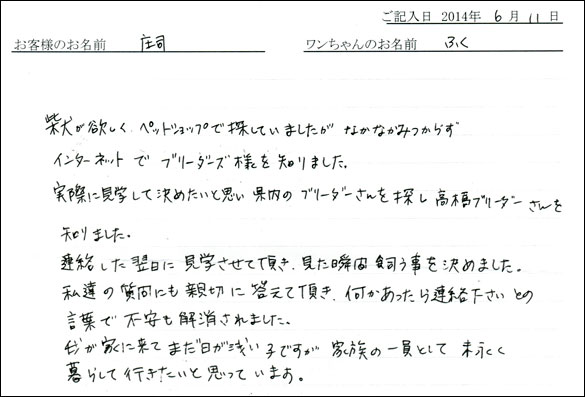 ご記入日 2014年 6月 11日
お客様のお名前 庄司 ワンちゃんのお名前 ふく
柴犬が欲しく ペットショップで探していましたが なかなかみつからず
インターネット で ブリーダーズ様を 知りました。
実際に見学して決めたいと思い 県内の ブリーダーさんを 探し 高橋ブリーダーさんを
知りました。
連絡した翌日に 見学させて頂き、見た瞬間 飼う事を 決めました。
私達の 質問にも 親切に 答えて頂き、何かあったら連絡下さい との
言葉で 不安も 解消されました。
が家に来て まだ日が浅い 子ですが 家族の一員として 末永く
暮らして行きたいと思って います。